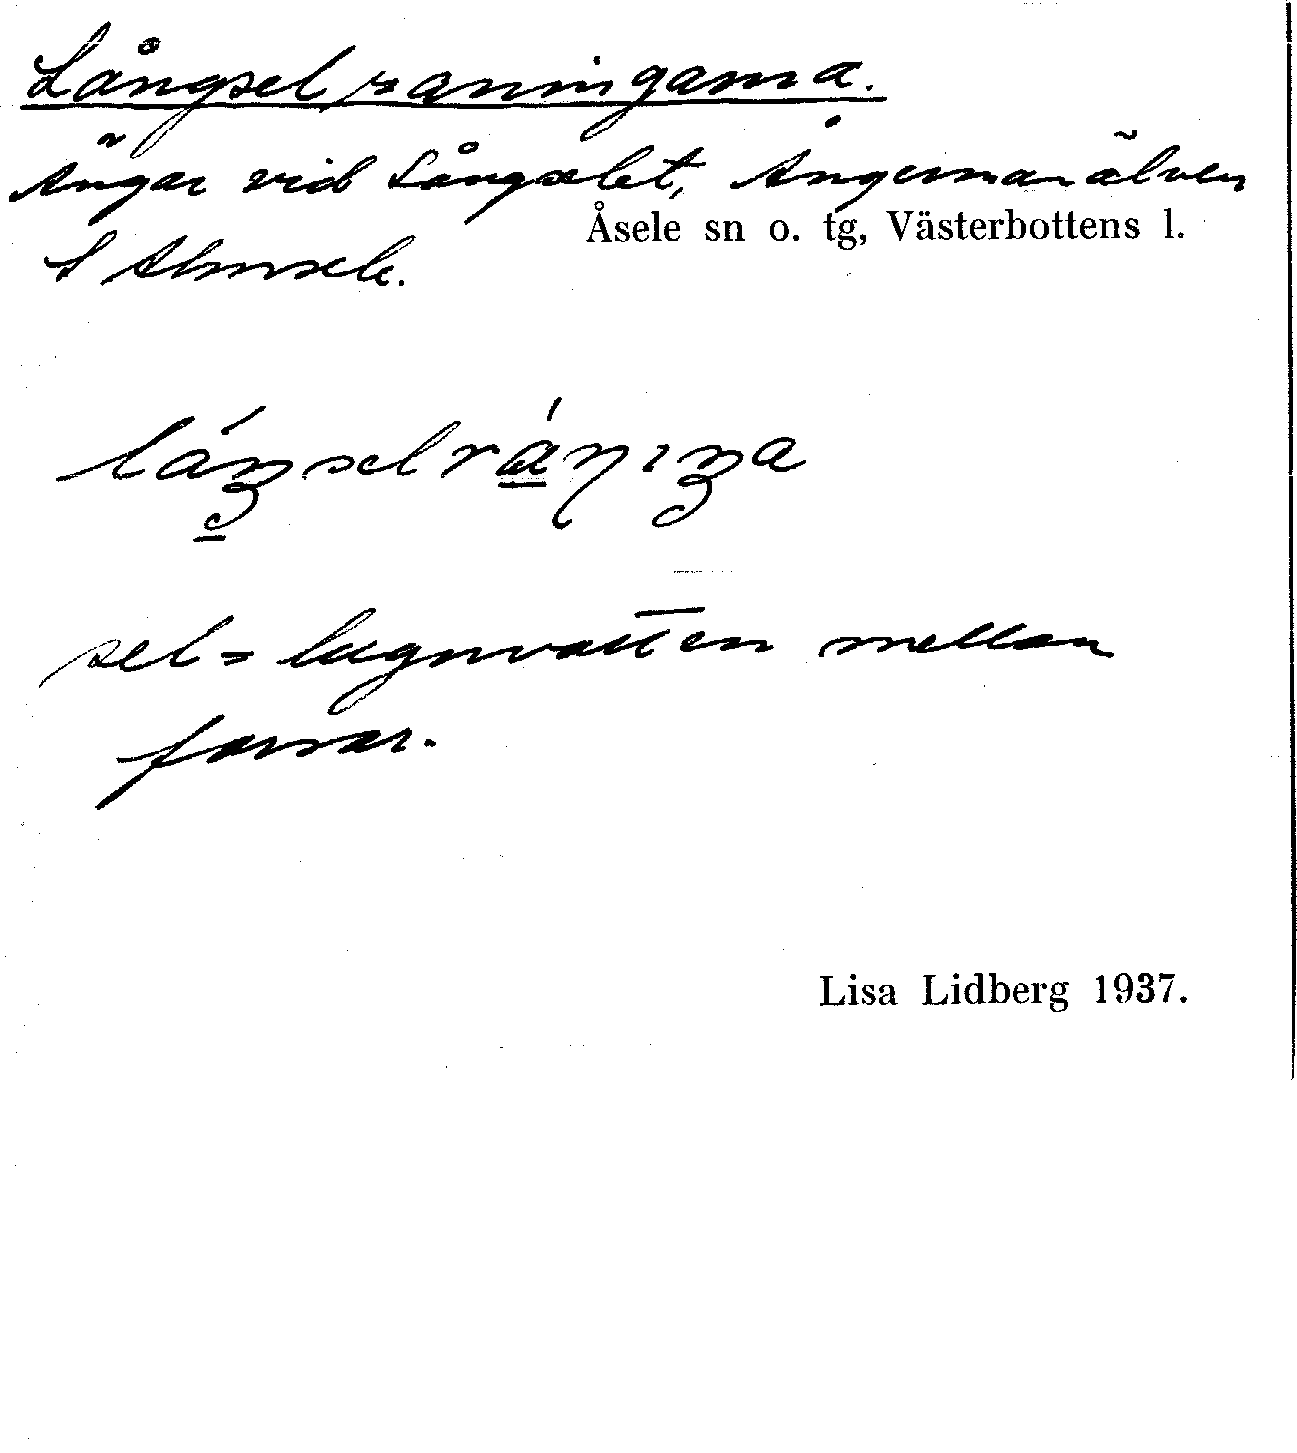 Långselraningarna.
Ängar vid Långselet, Ångermanälven
Åsele sn o. tg, Västerbottens l.
S Almsele.
sel = lugnvatten mellan
forsar.
Lisa Lidberg 1937.